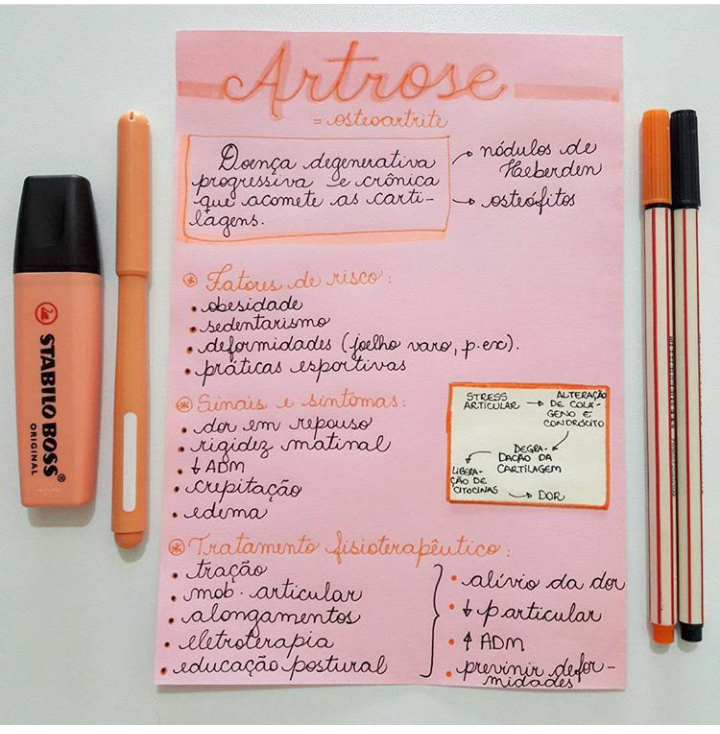 Artrose
= osteoartrite
Doença degenerativa
progressiva e crônica
que acomete as carti-
lagens.
nódulos de
Heberden
osteófitos
Fatores de risco:
• obesidade
• sedentarismo
• deformidades (joelho varo, p.ex).
• práticas esportivas
Sinais e sintomas:
• dor em repouso
• rigidez matinal
• ↓ ADM
• crepitação
• edema
STRESS
ARTICULAR →
ALTERAÇÃO
DE COLÁ-
GENO E
CONDRÓCITO
DEGRA-
DAÇÃO DA
CARTILAGEM
LIBERA-
ÇÃO DE
CITOCINAS
→ DOR
Tratamento fisioterapêutico:
• tração
• mob. articular
• alongamentos
• eletroterapia
• educação postural
• alívio da dor
• ↓ p articular
• ↑ ADM
• previnir defor-
midades
STABILO BOSS®
ORIGINAL